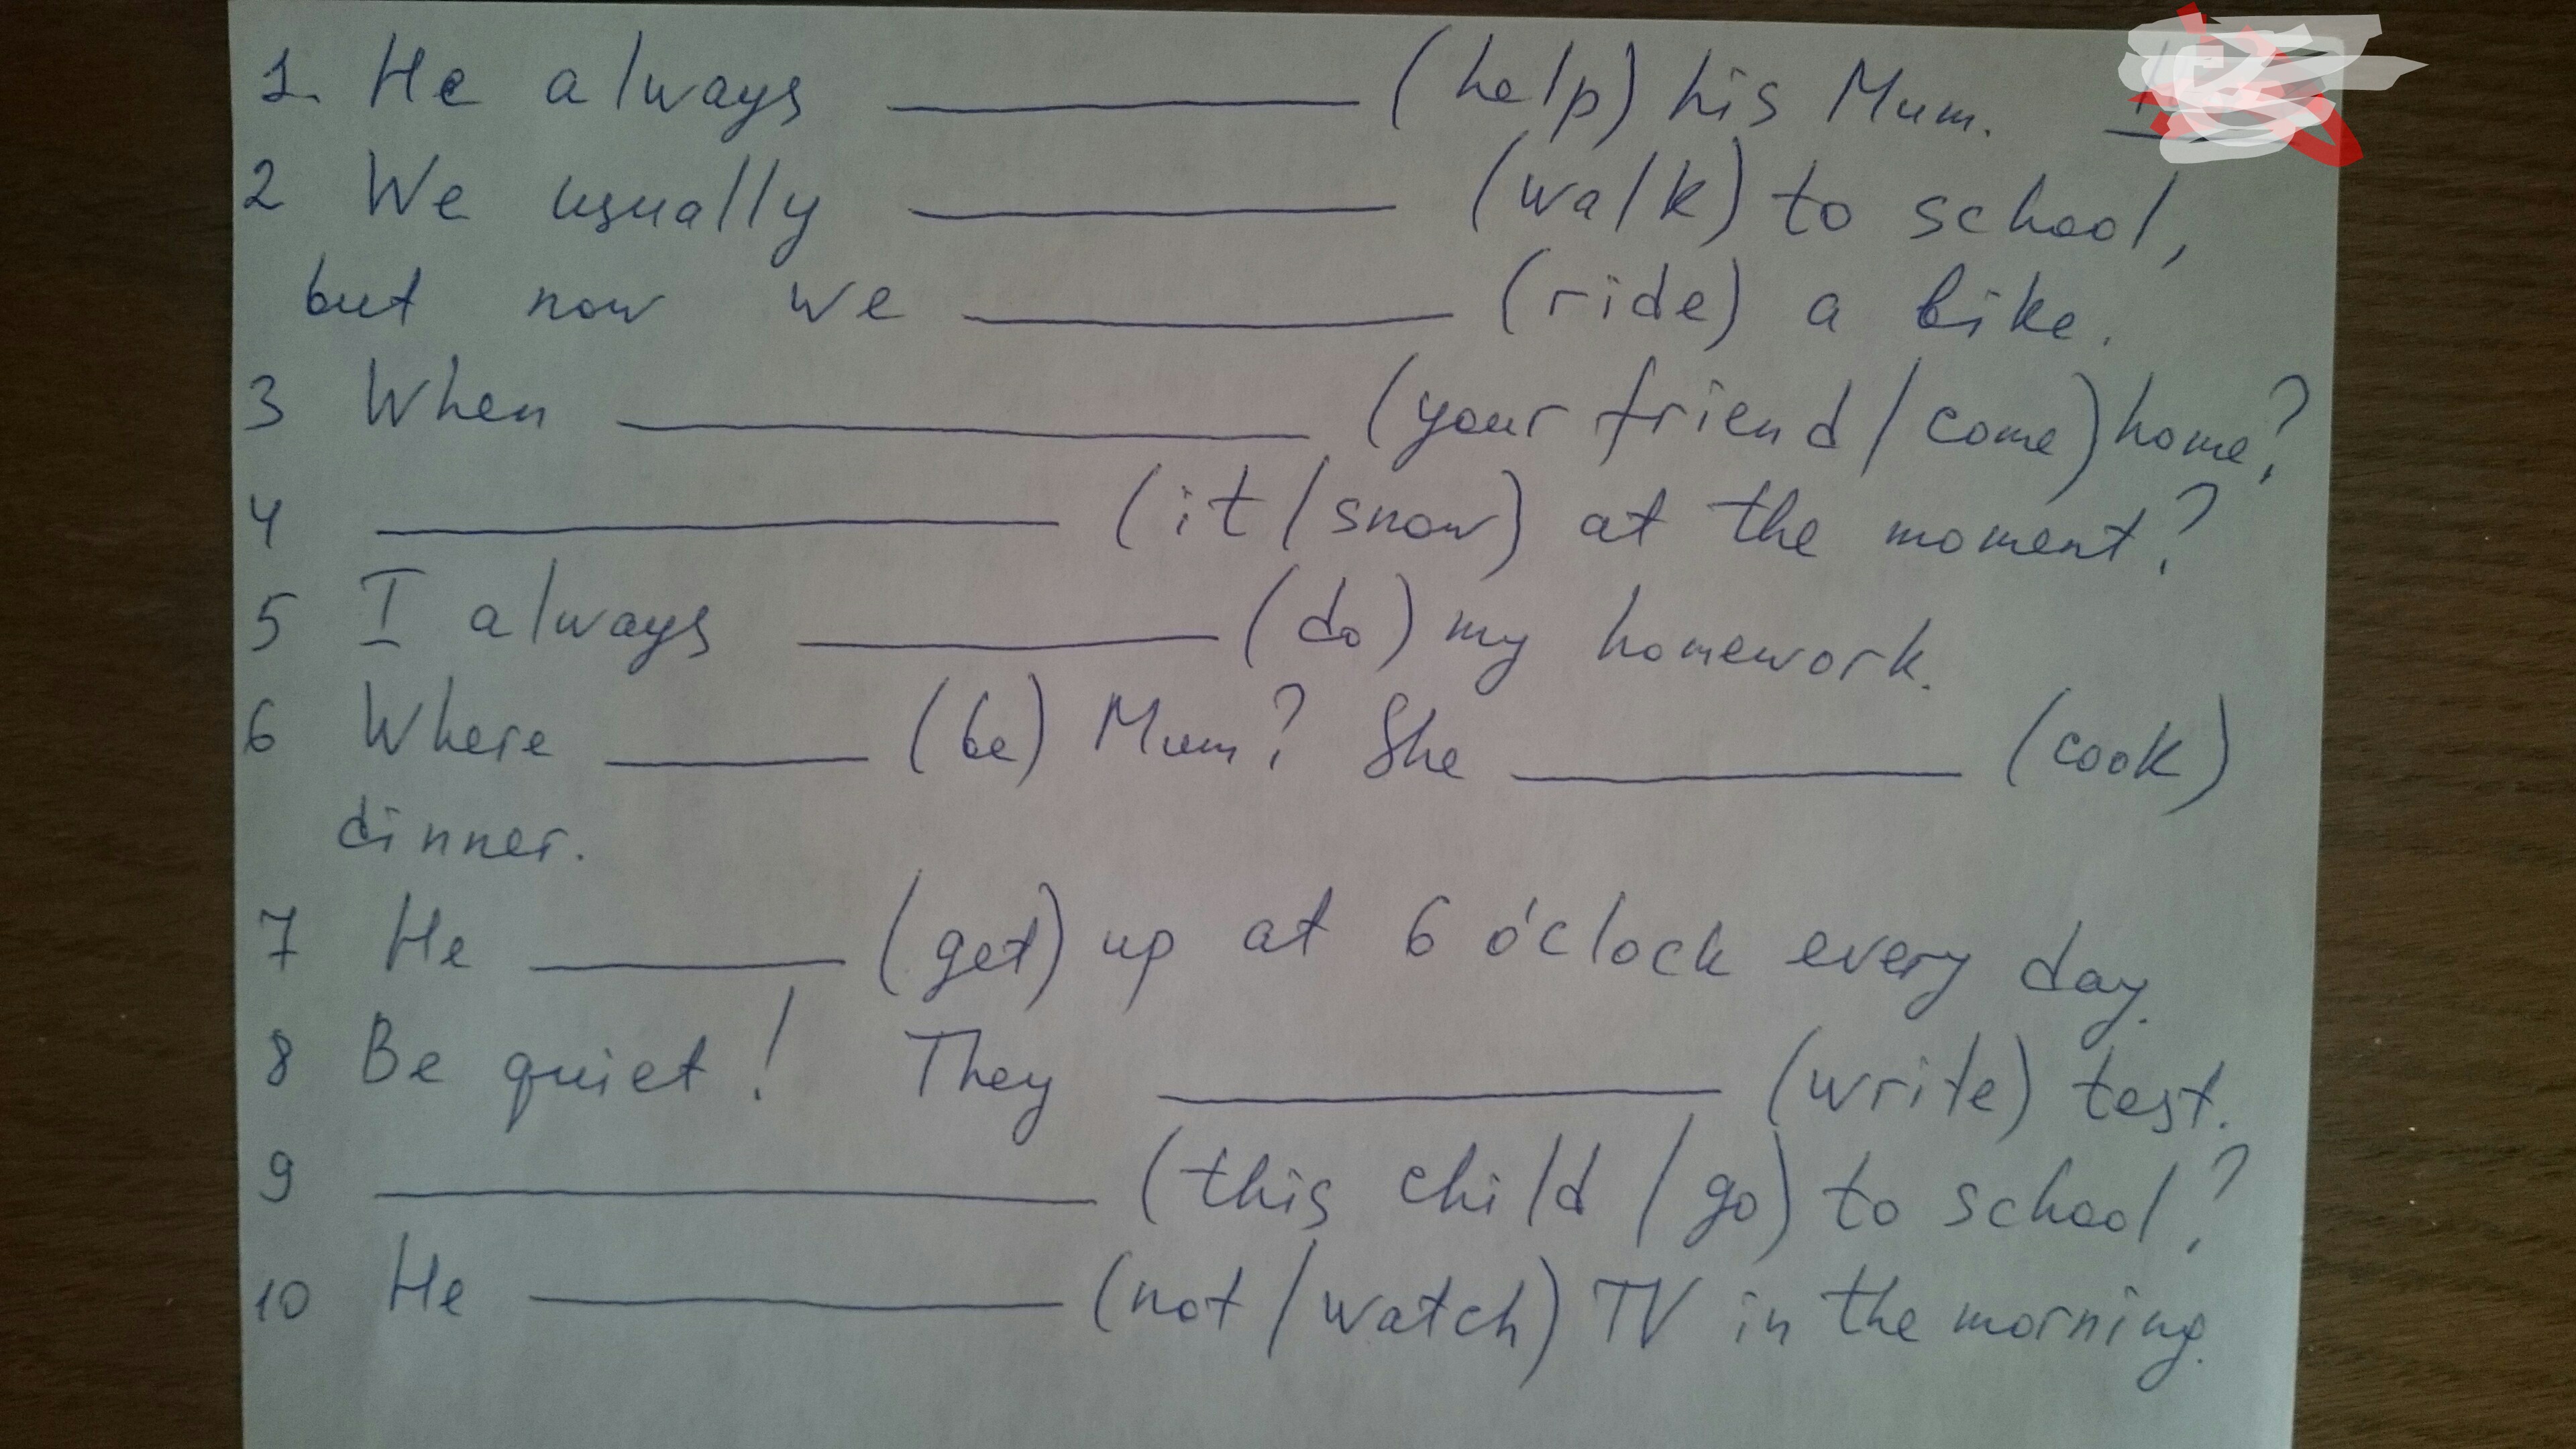 1. He always __________ (help) his Mum.
2 We usually __________ (walk) to school,
but now we __________ (ride) a bike.
3 When __________ (your friend / come) home?
4 __________ (it / snow) at the moment?
5 I always __________ (do) my homework.
6 Where ______ (be) Mum? She __________ (cook)
dinner.
7 He ______ (get) up at 6 o'clock every day.
8 Be quiet! They __________ (write) test.
9 __________ (this child / go) to school?
10 He __________ (not / watch) TV in the morning.